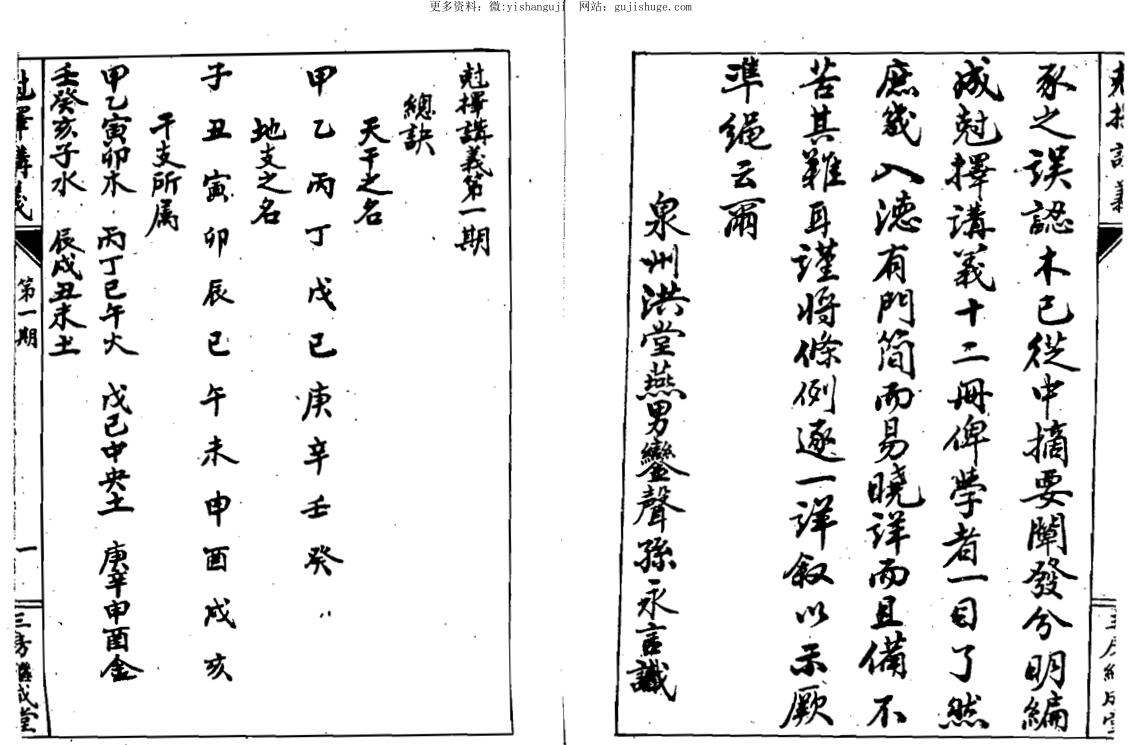 更多资料：微:yishanguji 网站：gujishuge.com
豕之誤認木已從中摘要闡發分明編
成尅擇講義十二冊俾學者一目了然
庶幾入德有門简而易曉詳而且備不
苦其難耳謹將條例逐一詳叙以示厥
準繩云爾
泉州洪堂燕男鑾聲孫永言識
尅擇講義第一期
總訣
天干之名
甲乙丙丁戊己庚辛壬癸
地支之名
子丑寅卯辰巳午未申酉戌亥
干支所属
甲乙寅卯木 丙丁巳午火 戊己中央土 庚辛申酉金
壬癸亥子水 辰戌丑未土
尅擇講義 第一期 一 三房繼成堂